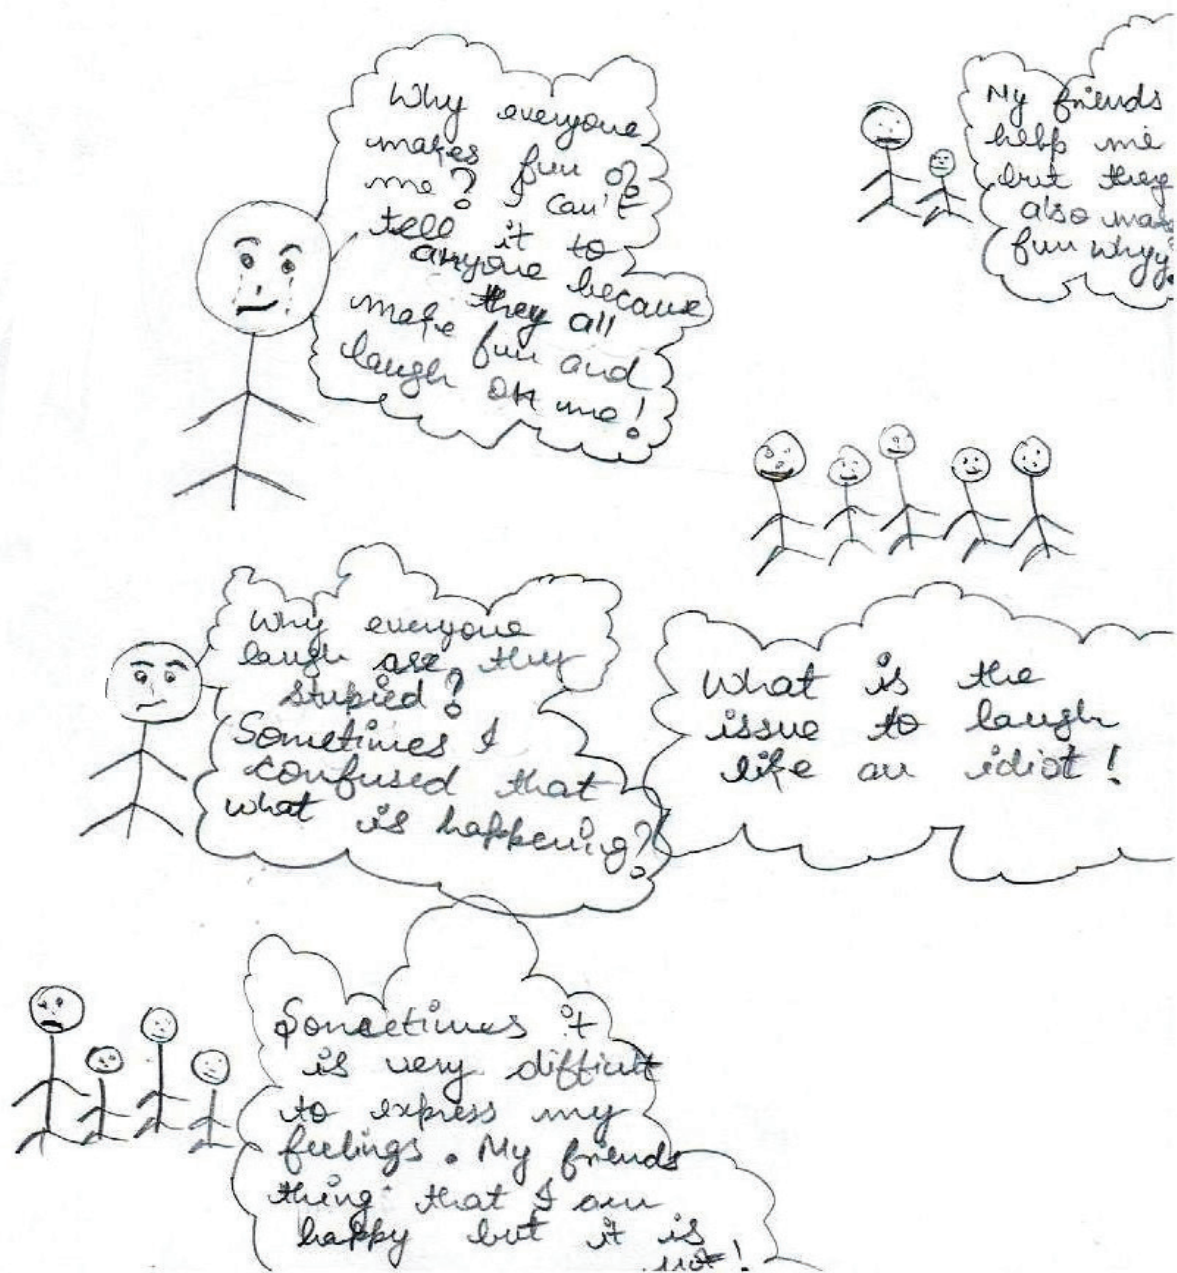 Why everyone
makes fun of
me? I can't
tell it to
anyone because
they all
make fun and
laugh on me!
My friends
help me
but they
also mak
fun whyy?
Why everyone
laugh are they
stupied?
Sometimes I
confused that
what is happening?
What is the
issue to laugh
like an idiot!
Sometimes it
is very difficult
to express my
feelings. My friends
thing that I am
happy but it is
not!